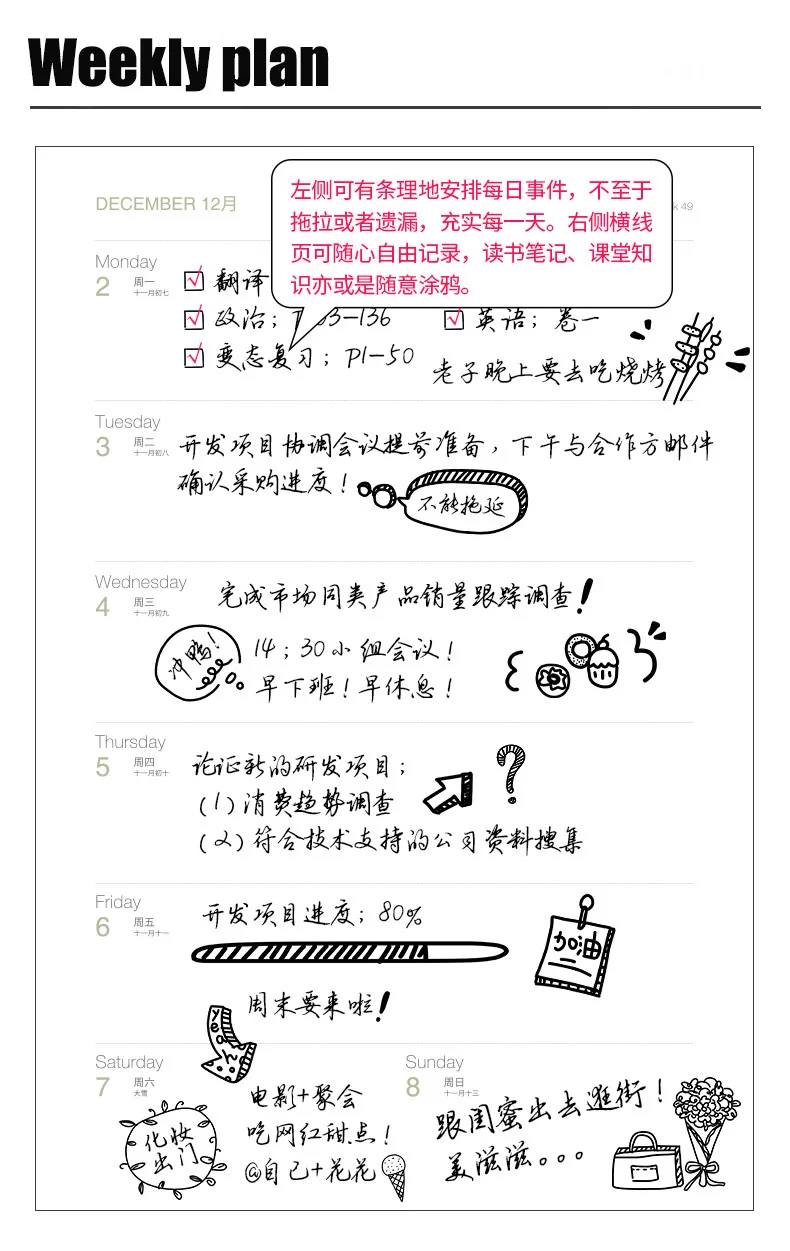 Weekly plan
DECEMBER 12月
k 49
左侧可有条理地安排每日事件，不至于
拖拉或者遗漏，充实每一天。右侧横线
页可随心自由记录，读书笔记、课堂知
识亦或是随意涂鸦。
Monday
2 周一
十一月初七
翻译
政治；
3-136
英语；卷一
变态复习；P1-50
老子晚上要去吃烧烤
Tuesday
3 周二
十一月初八
开发项目协调会议提前准备，下午与合作方邮件
确认采购进度！
不能拖延
Wednesday
4 周三
十一月初九
完成市场同类产品销量跟踪调查！
冲鸭！
14；30小组会议！
早下班！早休息！
Thursday
5 周四
十一月初十
论证新的研发项目；
(1)消费趋势调查
(2)符合技术支持的公司资料搜集
?
Friday
6 周五
十一月十一
开发项目进度；80%
加油
周末要来啦！
yeah
Saturday
7 周六
大雪
化妆
出门
电影+聚会
吃网红甜点！
@自己+花花
Sunday
8 周日
十一月十三
跟闺蜜出去逛街！
美滋滋。。。